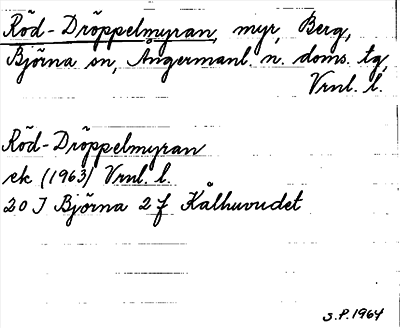 Röd-Dröppelmyran, myr, Berg,
Björna sn, Ångermanl. n. doms. tg,
Vrnl. l.
Röd-Dröppelmyran
ek (1963) Vrnl. l.
20 I Björna 2 f Kålhuvudet
S.P. 1964